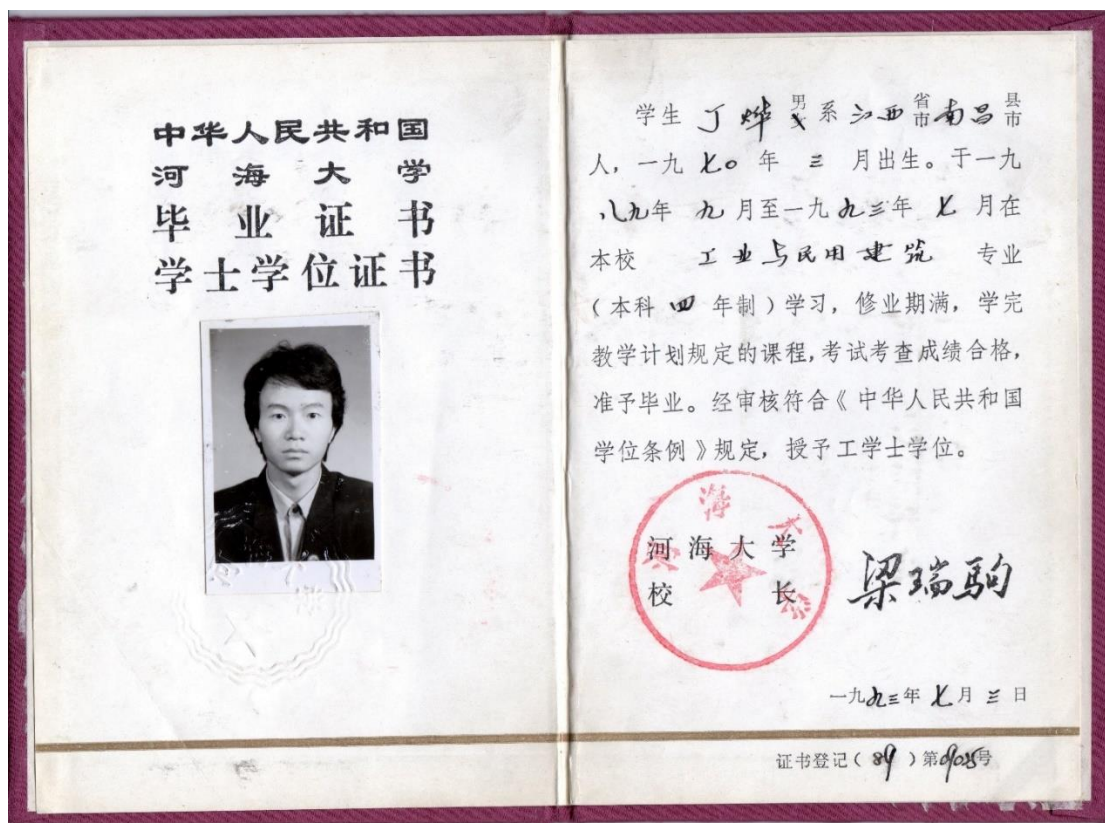 中华人民共和国
河海大学
毕业证书
学士学位证书
学生 丁烨 男 女 系 江西 省 市 南昌 县 市
人，一九七〇年三月出生。于一九
八九年九月至一九九三年七月在
本校 工业与民用建筑 专业
（本科四年制）学习，修业期满，学完
教学计划规定的课程，考试考查成绩合格，
准予毕业。经审核符合《中华人民共和国
学位条例》规定，授予工学士学位。
河海大学
河海大学
校长 梁瑞驹
一九九三年七月三日
证书登记（89）第 号